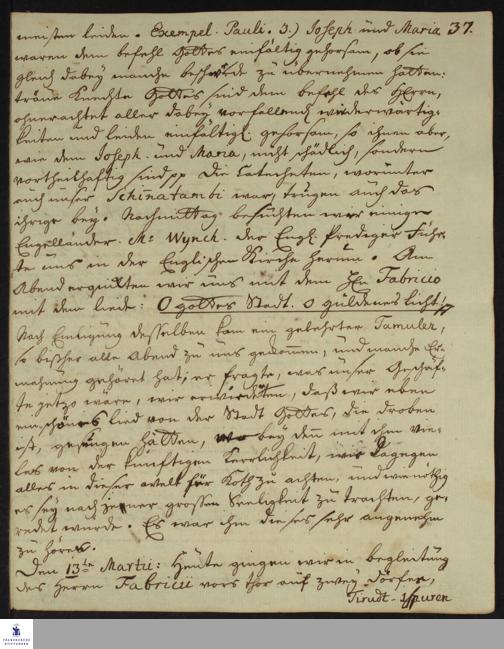 meisten leiden. Exempel. Pauli. 3.) Joseph und Maria 37.
waren dem befehl Gottes einfältig gehorsam, ob sie
gleich dabey manche beschwerde zu übernehmen hatten:
träue Knechte Gottes sind dem befehl des Herrn,
ohnerachtet aller dabey vorfallend widerwärtig-
keiten und leiden einfältigl. gehorsam, so ihnen aber,
wie dem Joseph. und Maria, nicht schädlich, sondern
vortheilhafftig sind pp Die Catecheten, worunter
auch unser Schinatambi war, trugen auch das
ihrige bey. Nachmittag besuchten wir einige
Engelländer. Mr Wynch. der Engl. Prediger führ-
te uns in der Englischen Kirche herum. Am
Abend ergözten wir uns mit dem Hn Fabricio
mit dem liede: O Gottes Stadt. O güldenes licht!
Nach Endigung desselben kam ein gelehrter Tamuler,
so bisher alle Abend zu uns gekommen, und manche Er-
mahnung gehöret hat; er fragte, was unser Geschäf-
te jetzo wäre, wir erwiederten, daß wir eben
ein schönes lied von der Stadt Gottes, die droben
ist, gesungen hätten, wo bey den mit ihm vie-
les von der künftigen Herrlichkeit, wie dagegen
alles in dieser welt für Koth zu achten, und wie nöthig
es sey nach jener grossen Seeligkeit zu trachten, ge-
redet wurde. Es war ihm dieses sehr angenehm
zu hören.
Den 13te Martii: Heute gingen wir in begleitung
des Herrn Fabricii vors thor auf zwey Dörfer,
Tirudt-
FRANCKESCHE
STIFTUNGEN